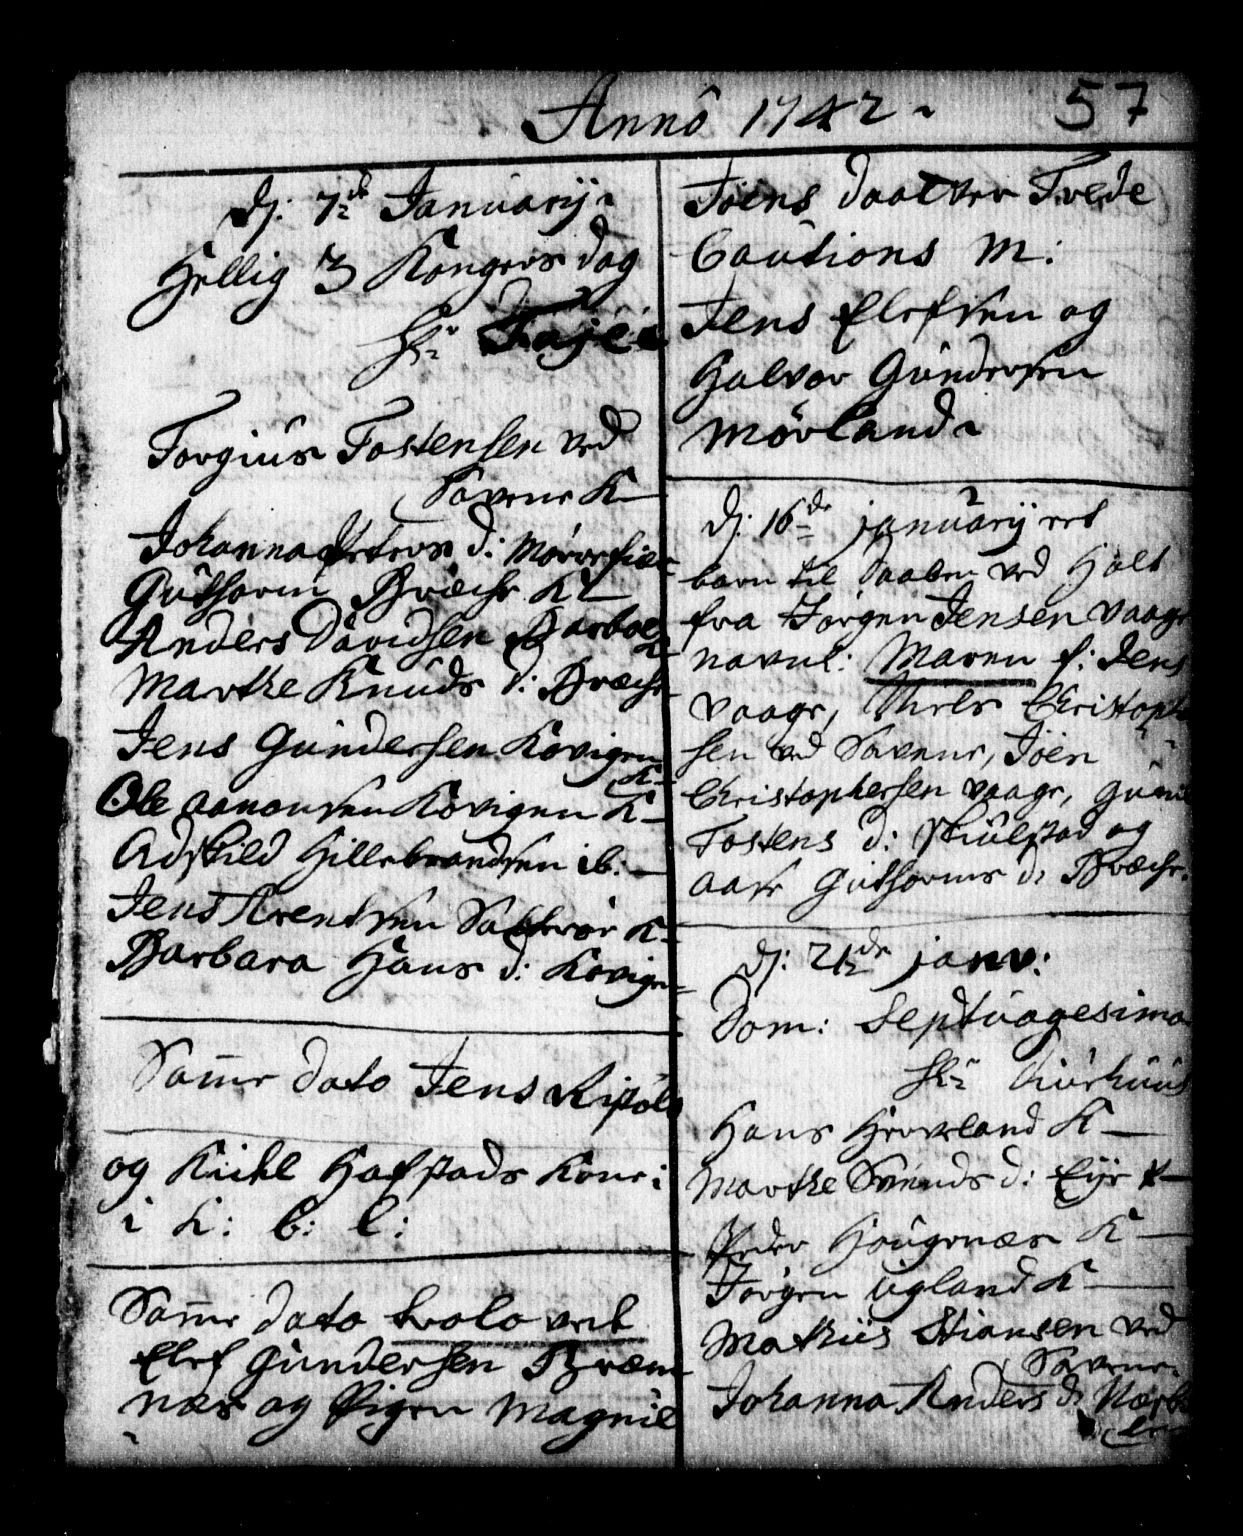 Anno 1742
57
D: 7de Januarij
Hellig 3 Kongers dag
Hr
Torgius Tostensen ved
Savene K
Johanna Peders d: Mørrefiær
Guthorm Bræche K
Anders Davidsen Barboe
K
Marthe Knuds d: Bræche
Jens Gundersen Kovigen
K
Ole Aanonsen Kovigen K
Adskild Hillebrandsen ib:
Jens Arentsen K
Barbara Hans d: Kovigen
Samme dato Jens
og Kield Hafstads Kone:
i K: b: l:
Samme dato trolovet
Elef Gundersen Bræm
næs og Pigen Magnil
Joens daatter Trede
Cautions M:
Jens Elefsen og
Halvor Gundersen
Mørland
D: 16de januarij et
barn til daaben ved Holt
fra Jørgen Jensen Vaage
navnl: Maren f: Jens
Vaage, Niels Christoph
sen ved Savene, Joen
Christophersen Vaage, Gunil
Tostens d: Skiulstad og
Aase Guthorms d: Bræche.
D: 21de janv:
Dom: Septuagesima
Hr
Hans Herreland K
Marthe Svends d: Eije K
Peder Hougenæs K
Jørgen Ugland K
Mathis Stiansen ved
Savene
Johanna Anders d: